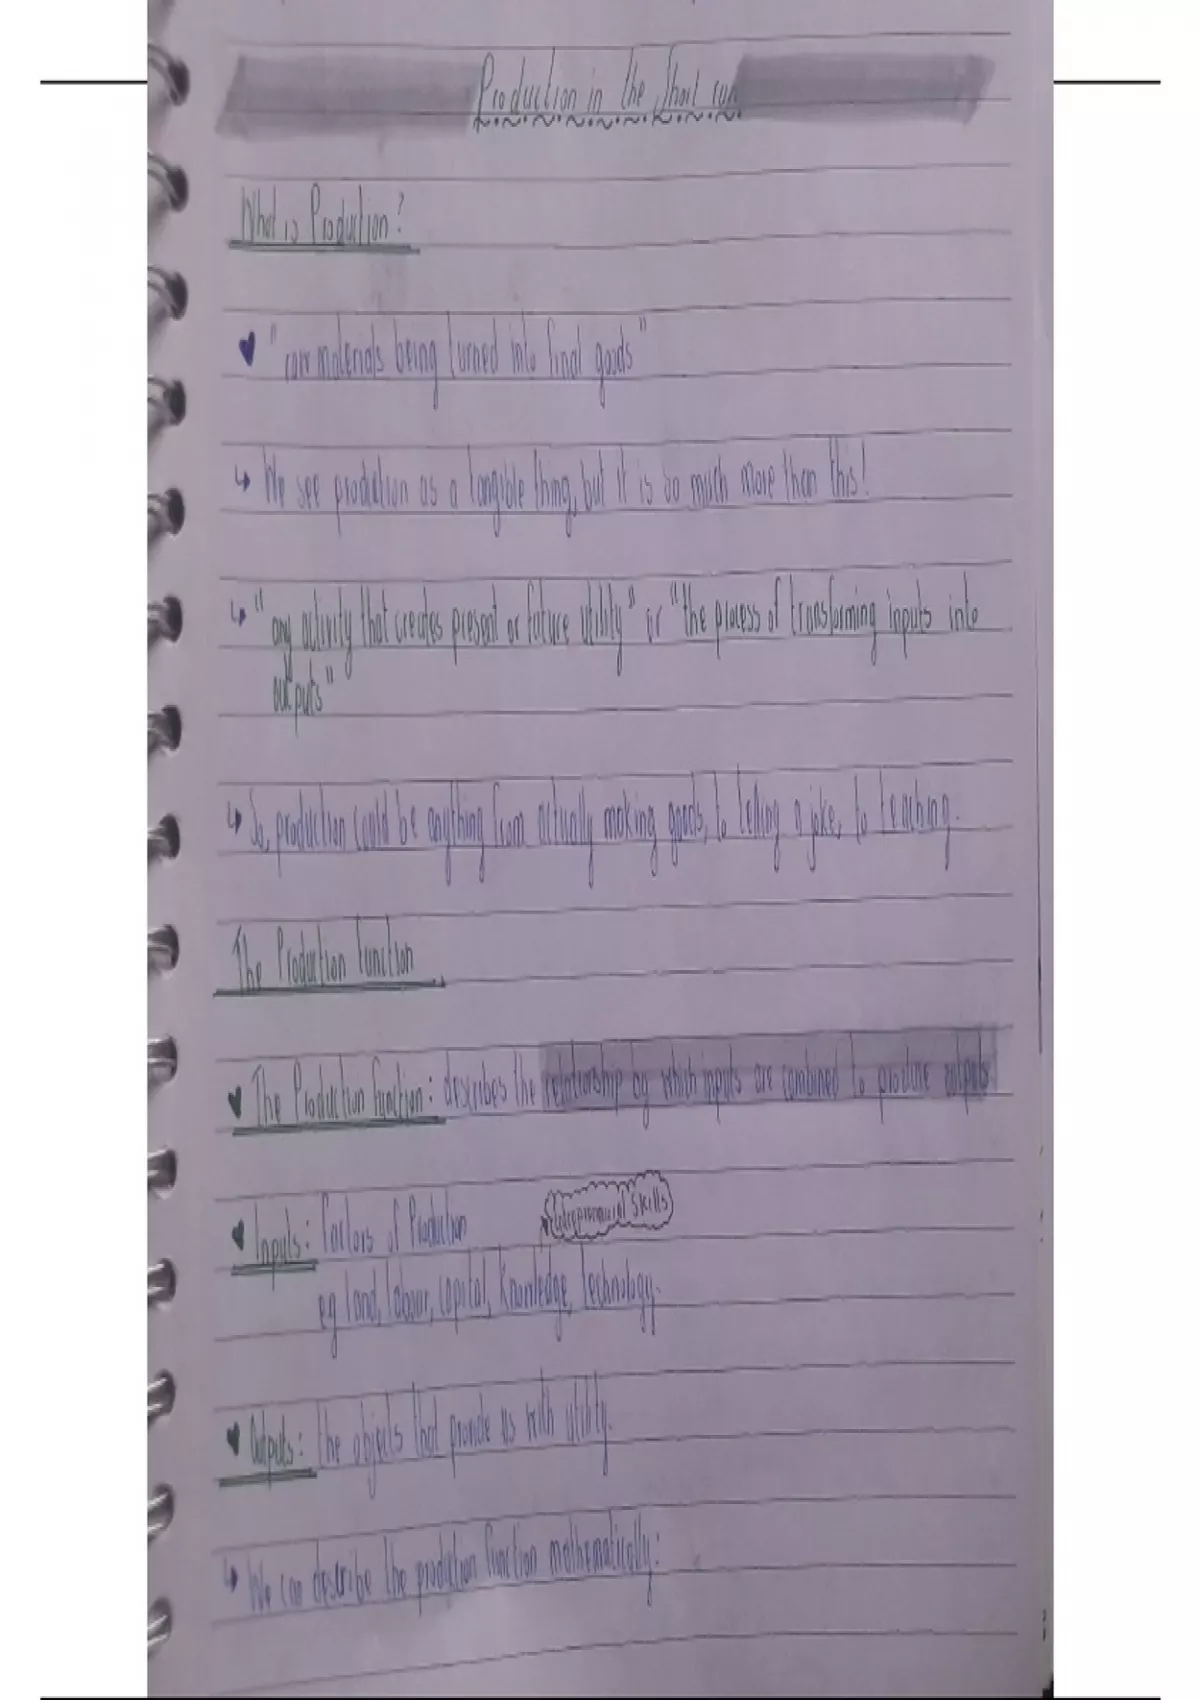 Production in the Short run
What is Production?
"raw materials being turned into final goods"
↳ We see production as a tangible thing, but it is so much more than this!
↳ "any activity that creates present or future utility" or "the process of transforming inputs into
outputs"
↳ So, production could be anything from actually making goods, to telling a joke, to teaching.
The Production Function
The Production Function: describes the relationship by which inputs are combined to produce outputs
Inputs: Factors of Production
Entrepreneurial Skills
eg land, labour, capital, Knowledge, Technology.
Outputs: the objects that provide us with utility.
↳ We can describe the production function mathematically: